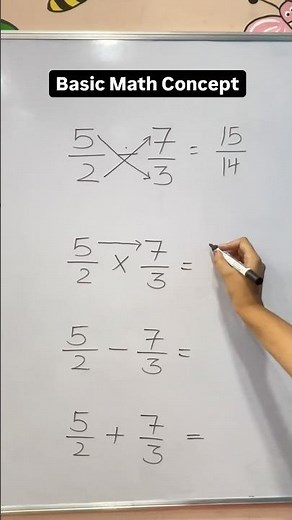 Basic Math Concept
5/2 ÷ 7/3 = 15/14
5/2 × 7/3 =
5/2 − 7/3 =
5/2 + 7/3 =